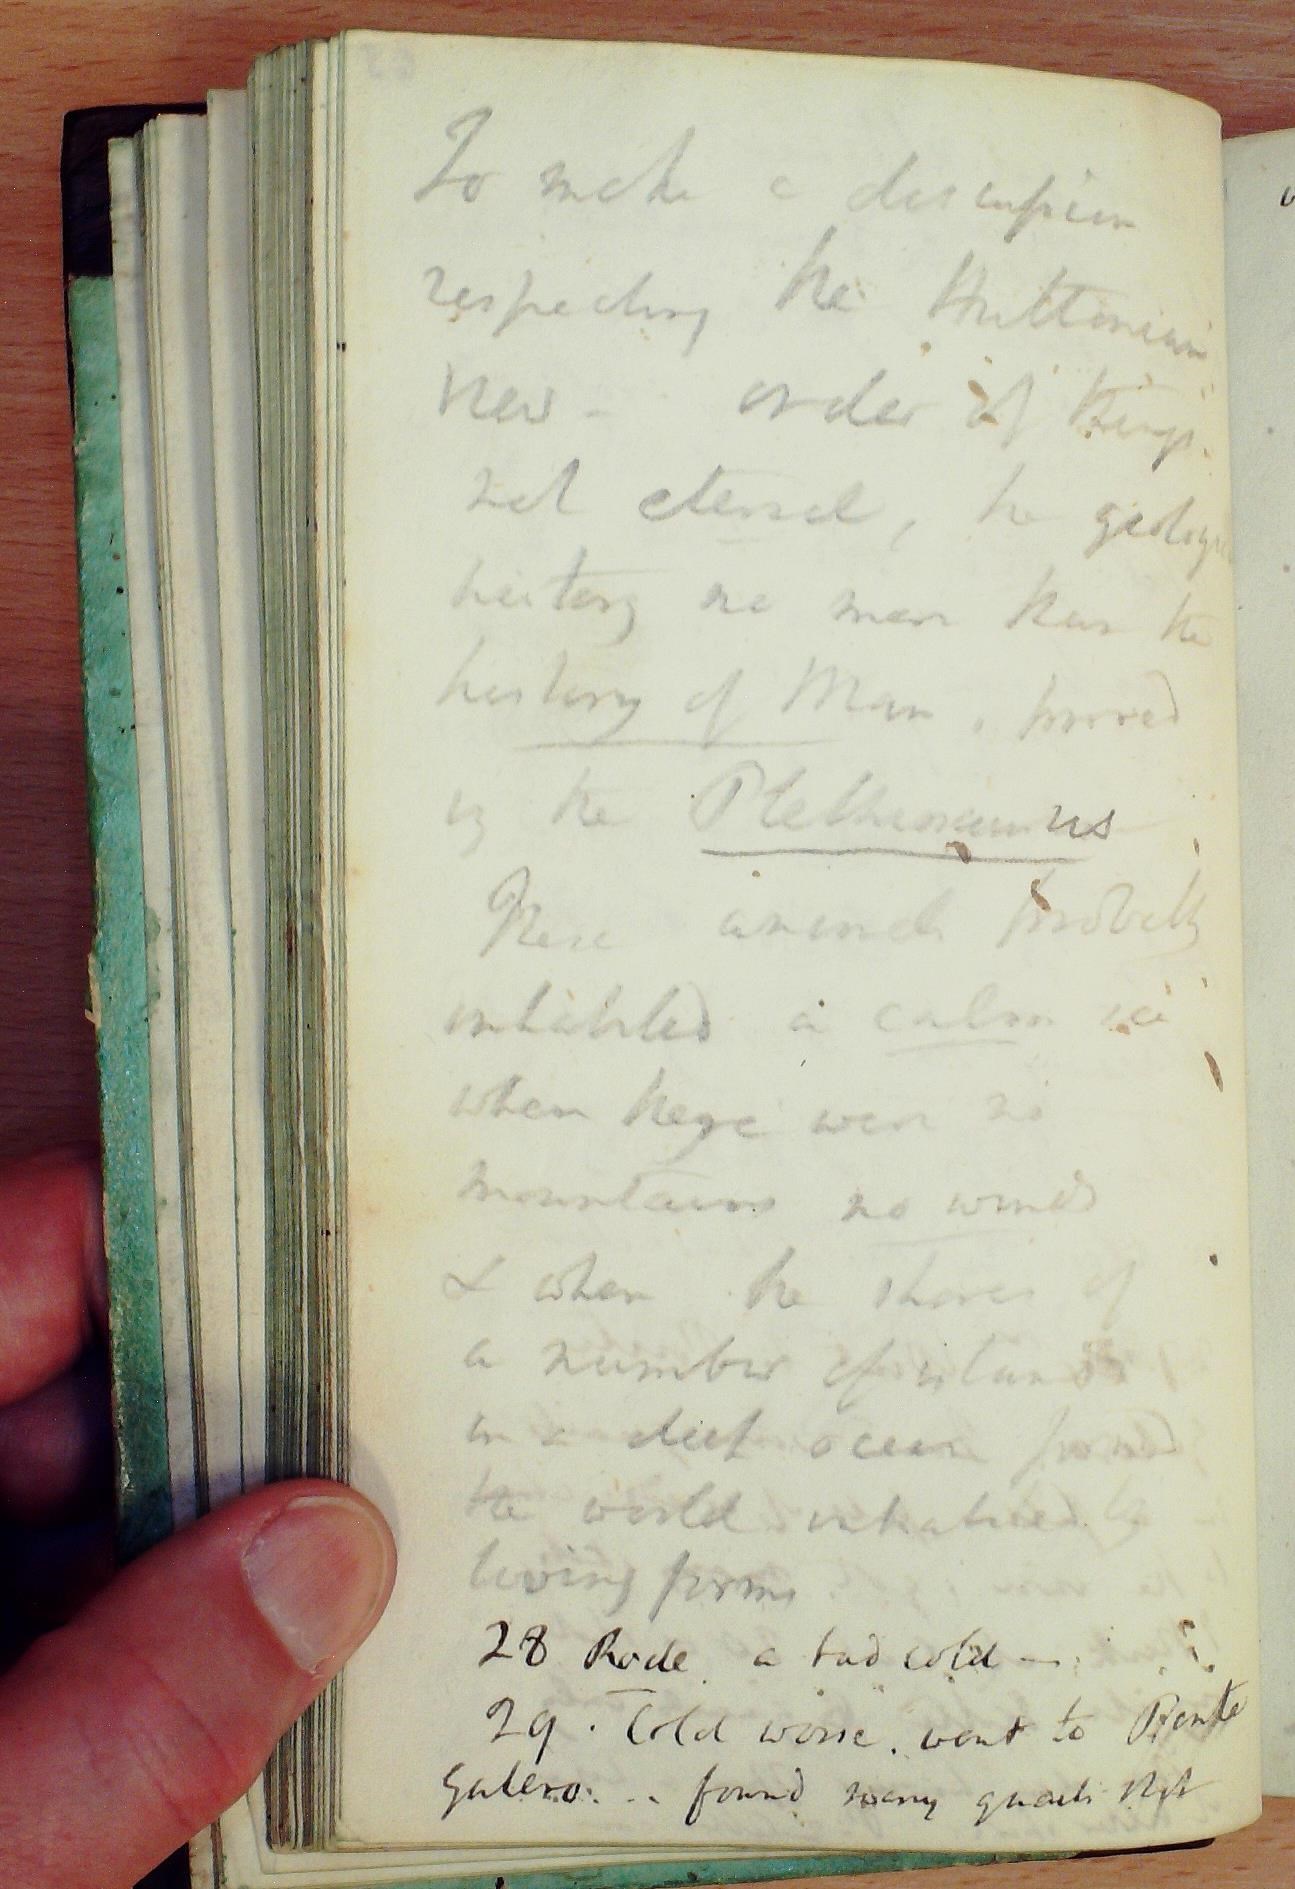 To make a discussion
respecting the Huttonian
view - order of things
not eternal, the geological
history no more than the
history of Man, proved
by the
These animals probably
inhabited a calm sea
when there were no
mountains no winds
& when the shores of
a number of islands
in a deep ocean formed
the world inhabited by
living forms
28 Rode a bad cold -
29. Cold worse. went to Ponte
Galera... found many quails shot